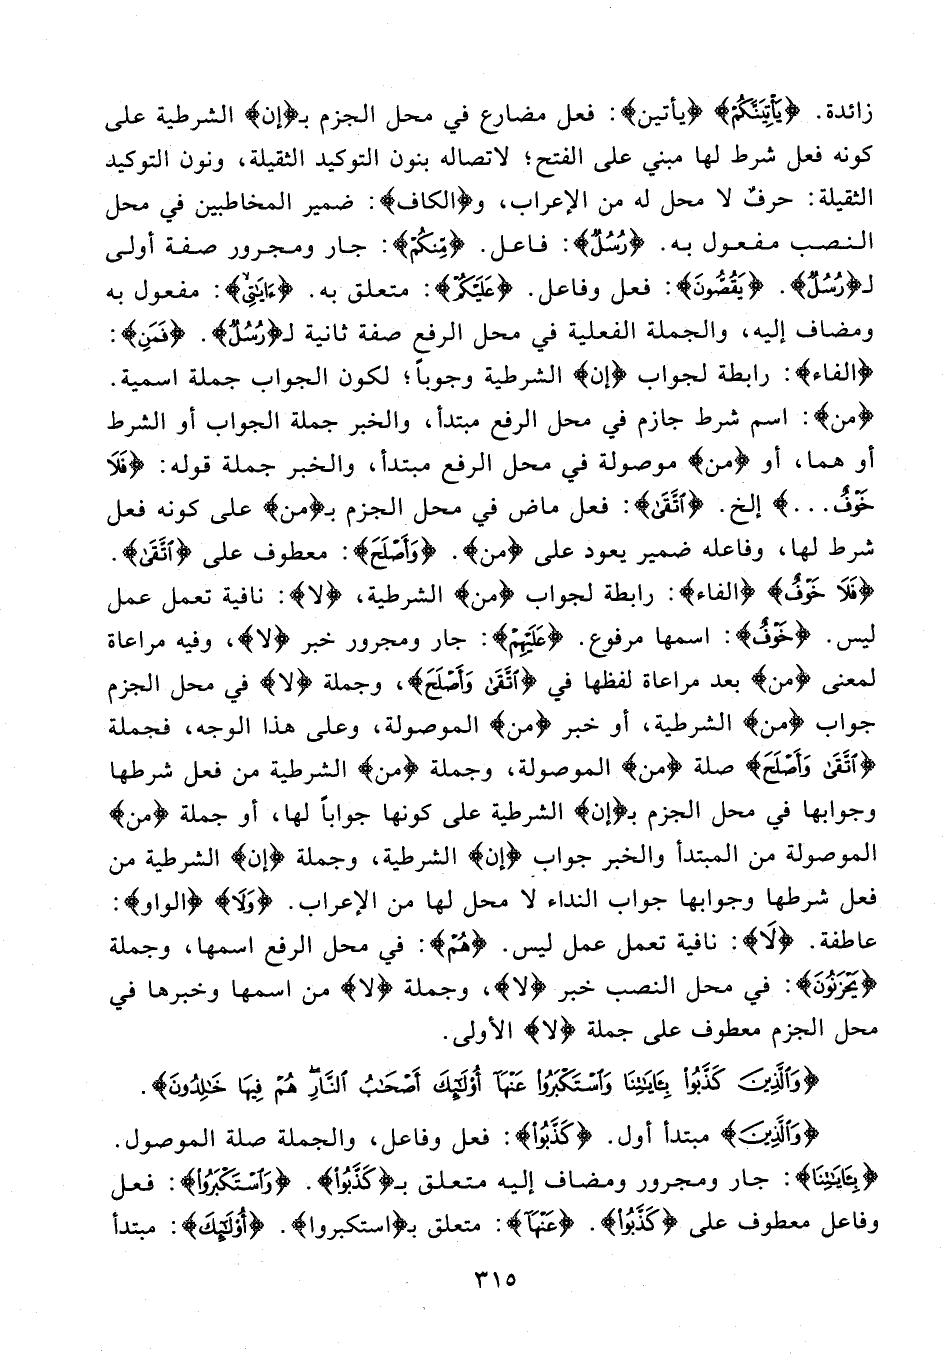 زائدة. ﴿يَأْتِيَنَّكُمْ﴾ ﴿يأتين﴾: فعل مضارع في محل الجزم بـ﴿إن﴾ الشرطية على
كونه فعل شرط لها مبني على الفتح؛ لاتصاله بنون التوكيد الثقيلة، ونون التوكيد
الثقيلة: حرفٌ لا محل له من الإعراب، و﴿الكاف﴾: ضمير المخاطبين في محل
النصب مفعول به. ﴿رُسُلٌ﴾: فاعل. ﴿مِّنكُمْ﴾: جار ومجرور صفة أولى
لـ﴿رُسُلٌ﴾. ﴿يَقُصُّونَ﴾: فعل وفاعل. ﴿عَلَيْكُمْ﴾: متعلق به. ﴿ءَايَٰتِي﴾: مفعول به
ومضاف إليه، والجملة الفعلية في محل الرفع صفة ثانية لـ﴿رُسُلٌ﴾. ﴿فَمَنِ﴾:
﴿الفاء﴾: رابطة لجواب ﴿إن﴾ الشرطية وجوباً؛ لكون الجواب جملة اسمية.
﴿من﴾: اسم شرط جازم في محل الرفع مبتدأ، والخبر جملة الجواب أو الشرط
أو هما، أو ﴿من﴾ موصولة في محل الرفع مبتدأ، والخبر جملة قوله: ﴿فَلَا
خَوْفٌ...﴾ إلخ. ﴿ٱتَّقَىٰ﴾: فعل ماض في محل الجزم بـ﴿من﴾ على كونه فعل
شرط لها، وفاعله ضمير يعود على ﴿من﴾. ﴿وَأَصْلَحَ﴾: معطوف على ﴿ٱتَّقَىٰ﴾.
﴿فَلَا خَوْفٌ﴾ ﴿الفاء﴾: رابطة لجواب ﴿من﴾ الشرطية، ﴿لا﴾: نافية تعمل عمل
ليس. ﴿خَوْفٌ﴾: اسمها مرفوع. ﴿عَلَيْهِمْ﴾: جار ومجرور خبر ﴿لا﴾، وفيه مراعاة
لمعنى ﴿من﴾ بعد مراعاة لفظها في ﴿ٱتَّقَىٰ وَأَصْلَحَ﴾، وجملة ﴿لا﴾ في محل الجزم
جواب ﴿من﴾ الشرطية، أو خبر ﴿من﴾ الموصولة، وعلى هذا الوجه، فجملة
﴿ٱتَّقَىٰ وَأَصْلَحَ﴾ صلة ﴿من﴾ الموصولة، وجملة ﴿من﴾ الشرطية من فعل شرطها
وجوابها في محل الجزم بـ﴿إن﴾ الشرطية على كونها جواباً لها، أو جملة ﴿من﴾
الموصولة من المبتدأ والخبر جواب ﴿إن﴾ الشرطية، وجملة ﴿إن﴾ الشرطية من
فعل شرطها وجوابها جواب النداء لا محل لها من الإعراب. ﴿وَلَا﴾ ﴿الواو﴾:
عاطفة. ﴿لَا﴾: نافية تعمل عمل ليس. ﴿هُمْ﴾: في محل الرفع اسمها، وجملة
﴿يَحْزَنُونَ﴾: في محل النصب خبر ﴿لا﴾، وجملة ﴿لا﴾ من اسمها وخبرها في
محل الجزم معطوف على جملة ﴿لا﴾ الأولى.
﴿وَٱلَّذِينَ كَذَّبُوا۟ بِـَٔايَٰتِنَا وَٱسْتَكْبَرُوا۟ عَنْهَآ أُو۟لَٰٓئِكَ أَصْحَٰبُ ٱلنَّارِ ۖ هُمْ فِيهَا خَٰلِدُونَ﴾.
﴿وَٱلَّذِينَ﴾ مبتدأ أول. ﴿كَذَّبُوا۟﴾: فعل وفاعل، والجملة صلة الموصول.
﴿بِـَٔايَٰتِنَا﴾: جار ومجرور ومضاف إليه متعلق بـ﴿كَذَّبُوا۟﴾. ﴿وَٱسْتَكْبَرُوا۟﴾: فعل
وفاعل معطوف على ﴿كَذَّبُوا۟﴾. ﴿عَنْهَآ﴾: متعلق بـ﴿استكبروا﴾. ﴿أُو۟لَٰٓئِكَ﴾: مبتدأ
٣١٥